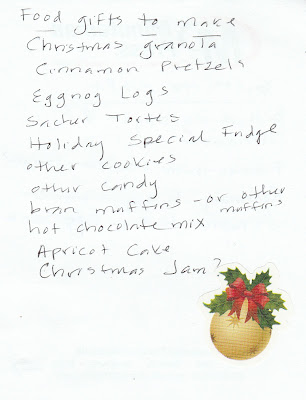 Food gifts to make
Christmas granola
Cinnamon Pretzels
Eggnog Logs
Sacher Tortes
Holiday Special Fudge
other cookies
other candy
bran muffins - or other muffins
hot chocolate mix
Apricot Cake
Christmas Jam?